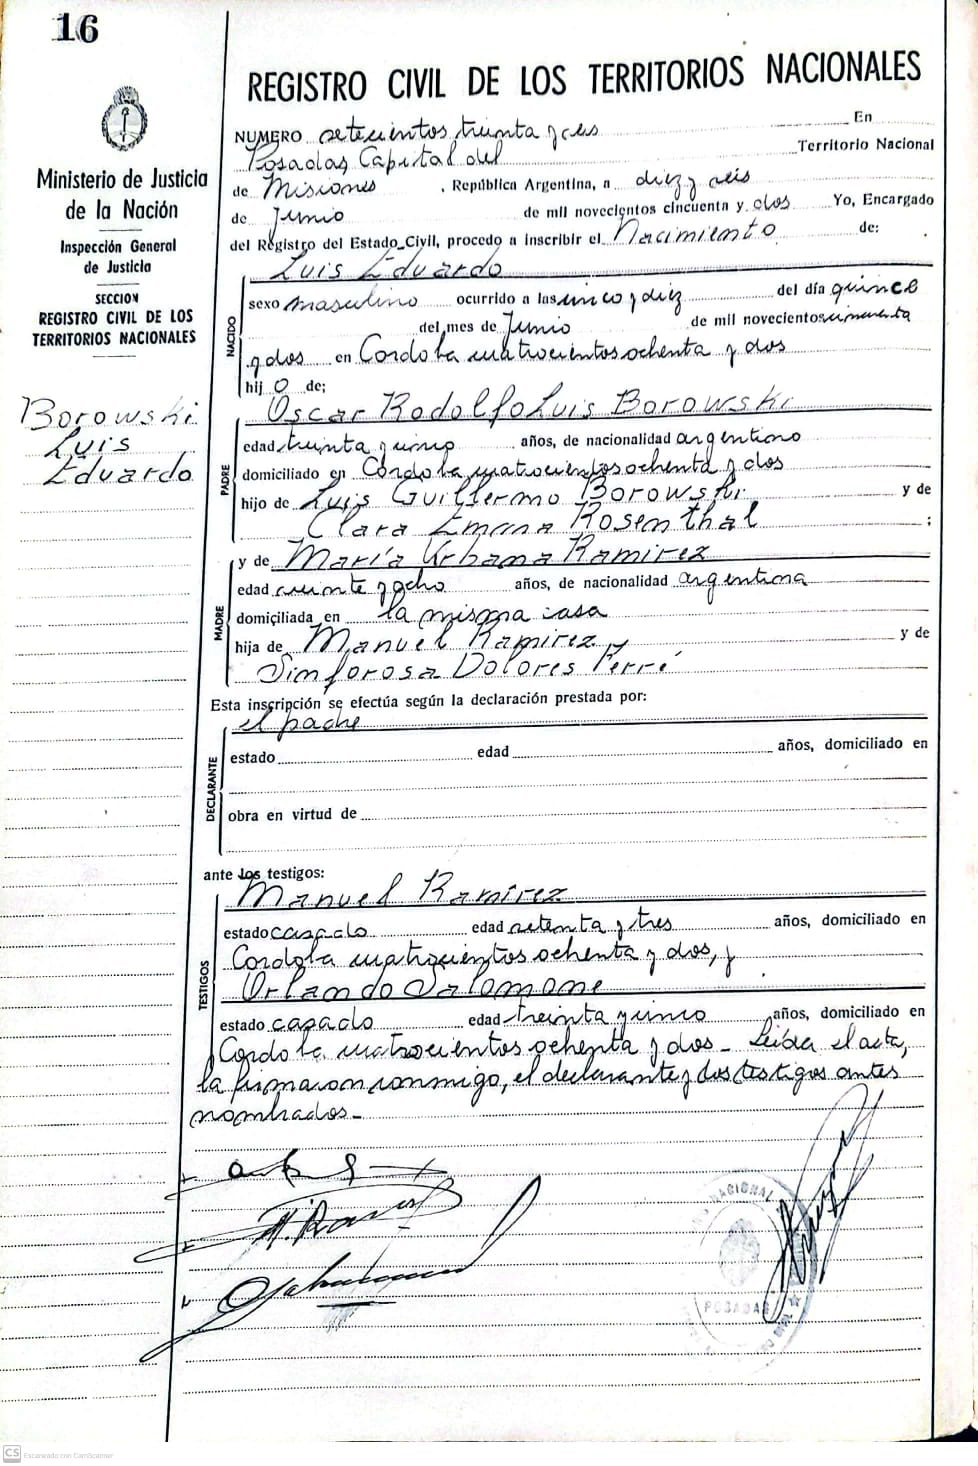 16
REGISTRO CIVIL DE LOS TERRITORIOS NACIONALES
Ministerio de Justicia
de la Nación
Inspección General
de Justicia
SECCION
REGISTRO CIVIL DE LOS
TERRITORIOS NACIONALES
Borowski
Luis
Eduardo
NUMERO setecientos treinta y seis En
Posadas Capital del Territorio Nacional
de Misiones , República Argentina, a diez y seis
de Junio de mil novecientos cincuenta y dos Yo, Encargado
del Registro del Estado Civil, procedo a inscribir el Nacimiento de:
Luis Eduardo
NACIDO
sexo masculino ocurrido a las cinco y diez del día quince
del mes de Junio de mil novecientos cincuenta
y dos en Cordoba cuatrocientos ochenta y dos
hij o de;
PADRE
Oscar Rodolfo Luis Borowski
edad treinta y cinco años, de nacionalidad argentino
domiciliado en Cordoba cuatrocientos ochenta y dos
hijo de Luis Guillermo Borowski y de
Clara Emana Rosenthal ;
MADRE
y de María Urbana Ramirez
edad veinte y ocho años, de nacionalidad argentina
domiciliada en la misma casa
hija de Manuel Ramirez y de
Sinforosa Dolores Ferré
Esta inscripción se efectúa según la declaración prestada por:
el padre
DECLARANTE
estado edad años, domiciliado en
obra en virtud de
ante los testigos:
TESTIGOS
Manuel Ramírez
estado casado edad setenta y tres años, domiciliado en
Cordoba cuatrocientos ochenta y dos, y
Orlando Salomone
estado casado edad treinta y cinco años, domiciliado en
Cordoba cuatrocientos ochenta y dos - Leida el acta,
la firmaron conmigo, el declarante y los testigos antes
nombrados-
NACIONAL
POSADAS
CS Escaneado con CamScanner